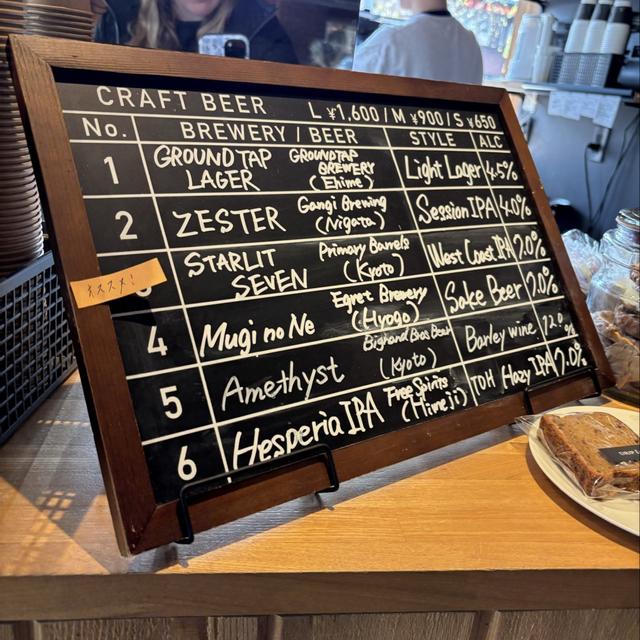 CRAFT BEER L ¥1,600 / M ¥900 / S ¥650
No. BREWERY / BEER STYLE ALC
1 GROUNDTAP LAGER GROUNDTAP BREWERY (Ehime) Light Lager 4.5%
2 ZESTER Gangi Brewing (Nigata) Session IPA 4.0%
オススメ! 3 STARLIT SEVEN Primary Barrels (Kyoto) West Coast IPA 7.0%
4 Mugi no Ne Egret Brewery (Hyogo) Sake Beer 7.0%
5 Amethyst Bighand Bros. Beer (Kyoto) Barley wine 12.0%
6 Hesperia IPA Free Spirits (Himeji) TDH Hazy IPA 7.0%